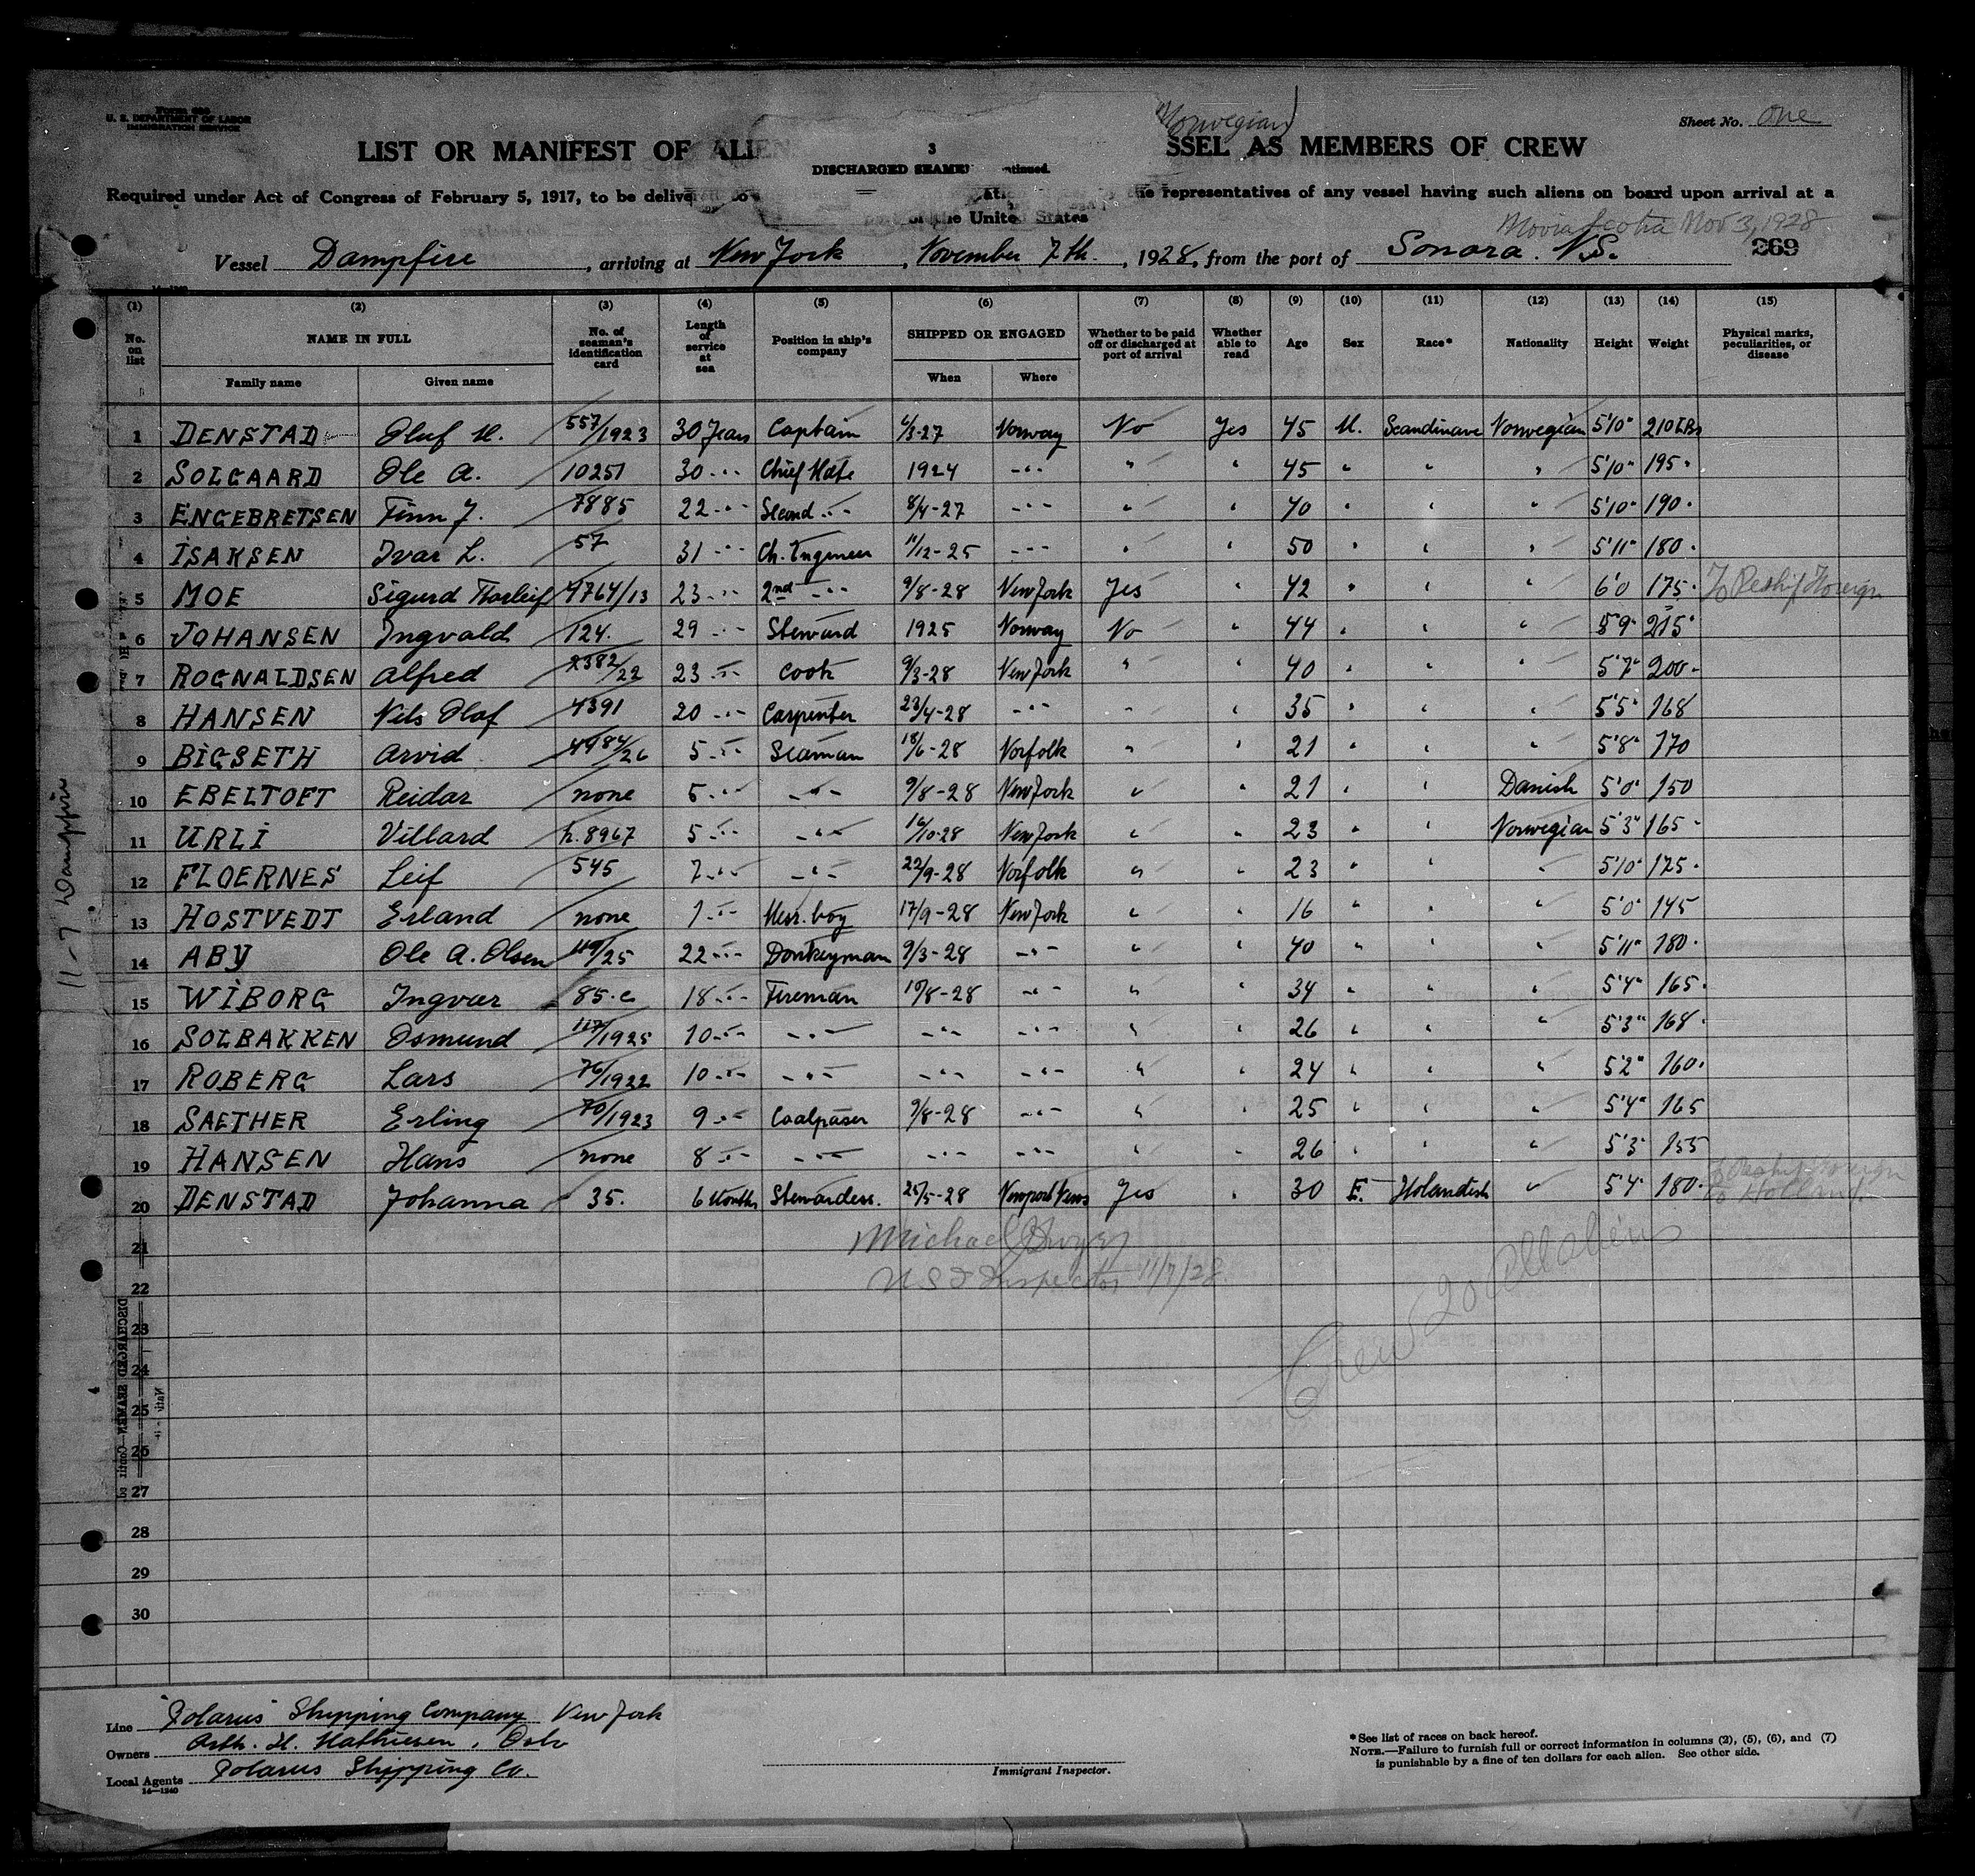 Form 689
U. S. DEPARTMENT OF LABOR
IMMIGRATION SERVICE
Norwegian
Sheet No. One
LIST OR MANIFEST OF ALIEN SSEL AS MEMBERS OF CREW
3
DISCHARGED SEAMEN
Required under Act of Congress of February 5, 1917, to be delive the representatives of any vessel having such aliens on board upon arrival at a
of the United States
Novia Scotia Nov 3, 1928
Vessel Dampfire, arriving at New York, November 7th., 1928, from the port of Sonora. N.S. 269
(1) (2) (3) (4) (5) (6) (7) (8) (9) (10) (11) (12) (13) (14) (15)
No. on list NAME IN FULL No. of seaman's identification card Length of service at sea Position in ship's company SHIPPED OR ENGAGED Whether to be paid off or discharged at port of arrival Whether able to read Age Sex Race* Nationality Height Weight Physical marks, peculiarities, or disease
Family name Given name When Where
1 DENSTAD Oluf H. 557/1923 30 Years Captain 4/3-27 Norway No Yes 45 M. Scandinave Norwegian 5'10" 210 LBs
2 SOLGAARD Ole A. 10251 30 -"- Chief Mate 1924 -"- " " 45 " " " 5'10" 195"
3 ENGEBRETSEN Finn J. 7885 22 -"- Second -"- 8/4-27 -"- " " 40 " " " 5'10" 190"
4 ISAKSEN Ivar L. 57 31 -"- Ch. Engineer 11/12-25 -"- " " 50 " " " 5'11" 180"
5 MOE Sigurd Thorleif 4764/13 23 -"- 2nd -"- 9/8-28 New York Yes " 42 " " " 6'0 175" To Reship Foreign
6 JOHANSEN Ingvald 124. 29 -"- Steward 1925 Norway No " 44 " " " 5'9" 215"
7 ROGNALDSEN Alfred 2382/22 23 -"- Cook 9/3-28 New York " " 40 " " " 5'7" 200"
8 HANSEN Nils Olaf 4391 20 -"- Carpenter 23/4-28 -"- " " 35 " " " 5'5" 168
9 BIGSETH Arvid 4984/26 5 -"- Seaman 18/6-28 Norfolk " " 21 " " " 5'8" 170
10 EBELTOFT Reidar none 5 -"- -"- 9/8-28 New York " " 21 " " Danish 5'0" 150
11 URLI Villard h. 8967 5 -"- -"- 16/10-28 New York " " 23 " " Norwegian 5'3" 165"
12 FLOERNES Leif 545 7 -"- -"- 22/9-28 Norfolk " " 23 " " " 5'10" 175"
13 HOSTVEDT Erland none 1 -"- Mess. boy 17/9-28 New York " " 16 " " " 5'0" 145
14 ABY Ole A. Olsen 119/25 22 -"- Donkeyman 9/3-28 -"- " " 40 " " " 5'11" 180"
15 WIBORG Ingvar 85.c 18 -"- Fireman 10/8-28 -"- " " 34 " " " 5'4" 165"
16 SOLBAKKEN Osmund 117/1925 10 -"- -"- -"- -"- " " 26 " " " 5'3" 168"
17 ROBERG Lars 76/1922 10 -"- -"- -"- -"- " " 24 " " " 5'2" 160"
18 SAETHER Erling 70/1923 9 -"- Coalpaser 9/8-28 -"- " " 25 " " " 5'4" 165
19 HANSEN Hans none 8 -"- -"- -"- -"- " " 26 " " " 5'3" 155
20 DENSTAD Johanna 35. 6 Months Stewardess. 25/5-28 Newport News Yes " 30 F. Holandish " 5'4" 180" To Reship Foreign
to Holland
21
Michael Dwyer
22
U S I Inspector 11/7/28
Crew 20 All aliens
23
24
25
26
27
28
29
30
11-7 Dampfire
DISCHARGED SEAMEN
Line "Polarus" Shipping Company New York
Owners Arth. H. Mathiesen, Oslo
Local Agents Polarus Shipping Co.
14—1240
Immigrant Inspector.
*See list of races on back hereof.
NOTE.—Failure to furnish full or correct information in columns (2), (5), (6), and (7)
is punishable by a fine of ten dollars for each alien. See other side.